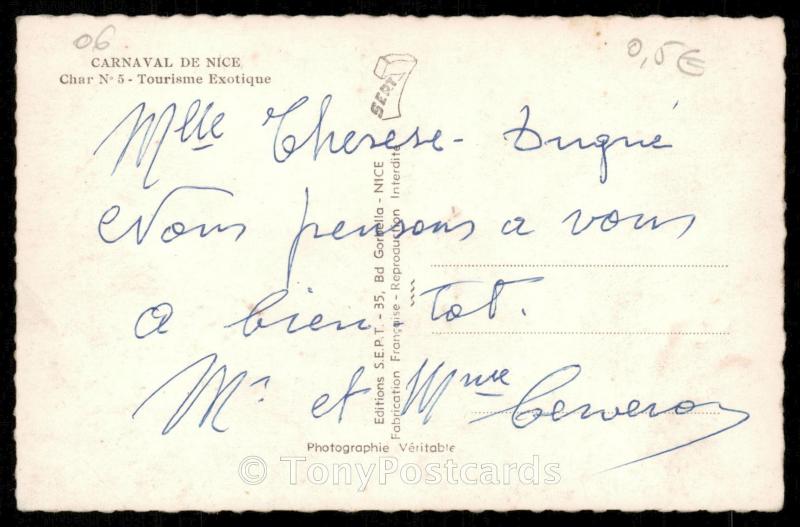 06
0,5€
CARNAVAL DE NICE
Char N° 5 - Tourisme Exotique
SEPT
Mlle Therese Dugué
Nous pensons a vous
a bien tot.
Mr et Mme
Editions S.E.P.T. - 35, Bd Gorbella - NICE
Fabrication Française - Reproduction Interdite
Photographie Véritable
© TonyPostcards